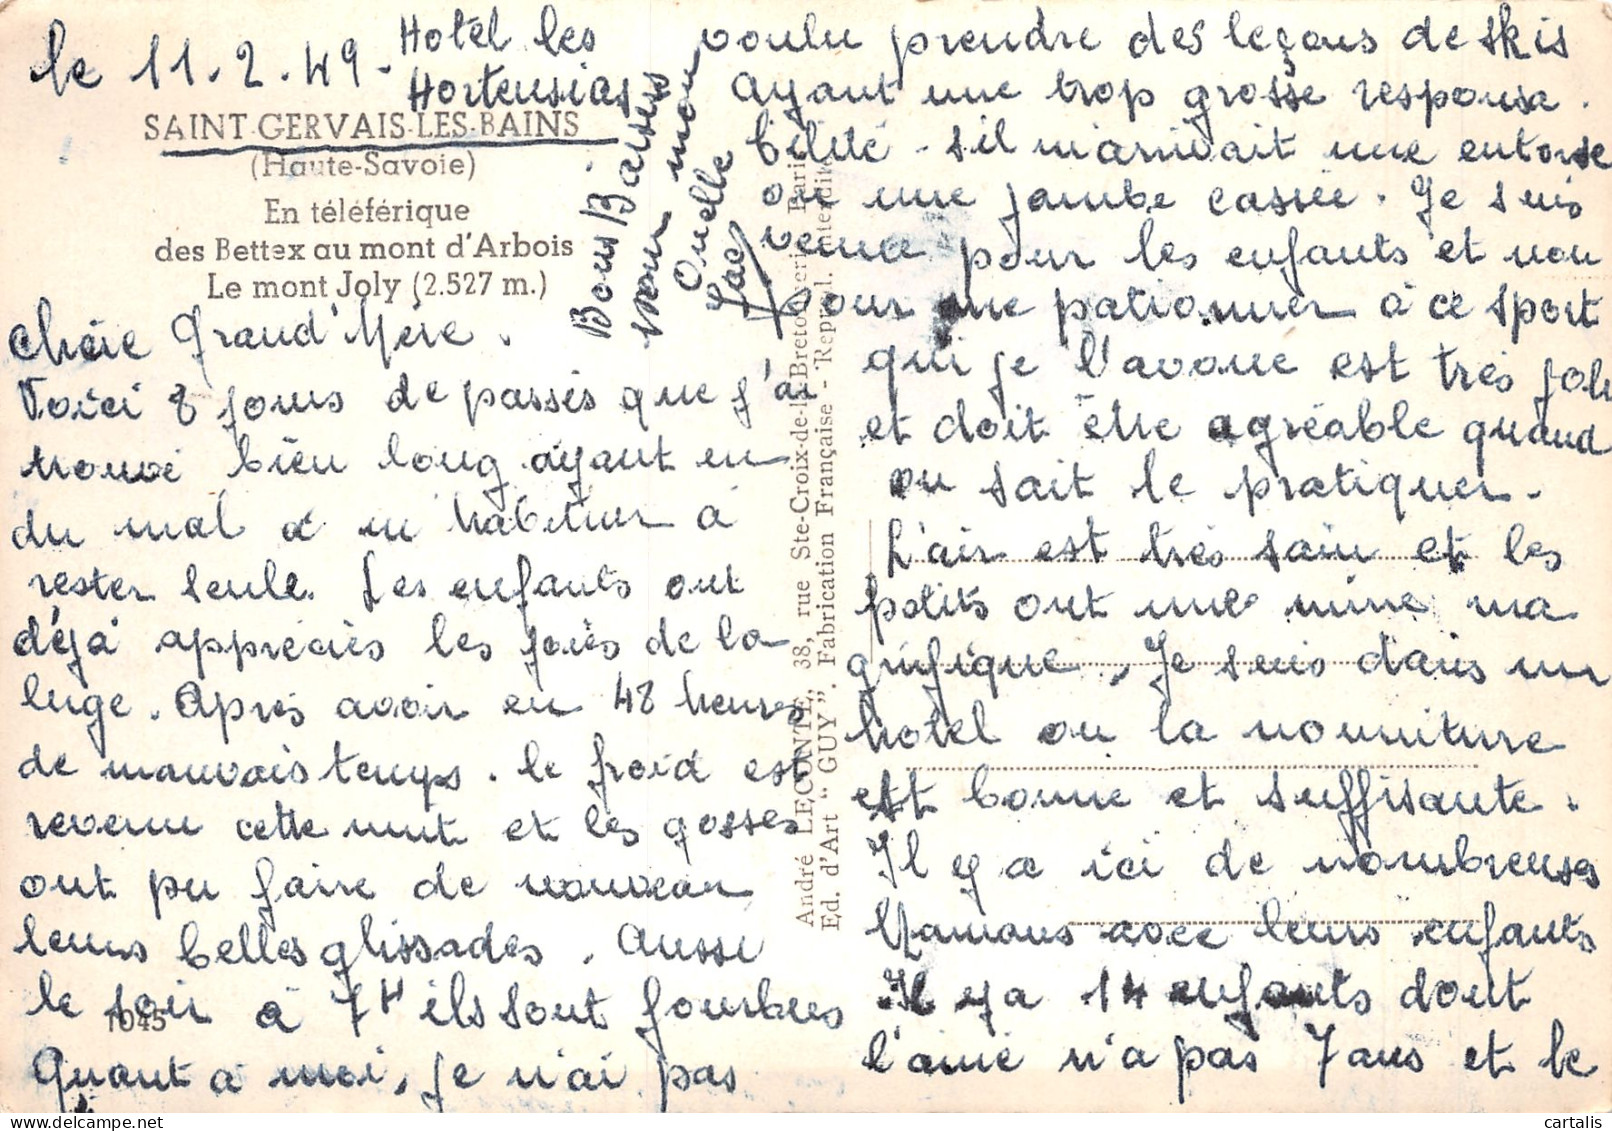 le 11.2.49.
Hotel les
Hortensias
SAINT-GERVAIS-LES-BAINS
(Haute-Savoie)
En téléférique
des Bettex au mont d'Arbois
Le mont Joly (2.527 m.)
Chère Grand'Mère.
Voici 8 jours de passés que j'ai
trouvé bien long ayant eu
du mal à m'habituer à
rester seule. Les enfants ont
déjà appréciés les joies de la
luge. Après avoir eu 48 heures
de mauvais temps. le froid est
revenu cette nuit et les gosses
ont pu faire de nouveau
leurs belles glissades. Aussi
le soir à 7H ils sont fourbus
1045
Quant à moi, je n'ai pas
voulu prendre des leçons de skis
ayant une trop grosse responsa.
bilité. s'il m'arrivait une entorse
ou une jambe cassée. Je suis
venue pour les enfants et non
pour me pationner à ce sport
qui je l'avoue est très joli
et doit être agréable quand
on sait le pratiquer.
L'air est très sain et les
petits ont une mine ma
gnifique. Je suis dans un
hotel ou la nourriture
est bonne et suffisante.
Il y a ici de nombreuses
Mamans avec leurs enfants
Il y a 14 enfants dont
l'ainé n'a pas 7 ans et le
Bons Baisers
mon
André LECONTE, 38, rue Ste-Croix-de-la-Bretonnerie, Paris
Ed. d'Art "GUY". Fabrication Française - Reprod. interdite
cartalis